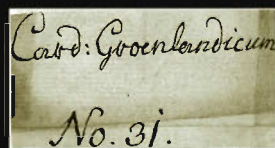 Card: Groenlandicum
No. 31.